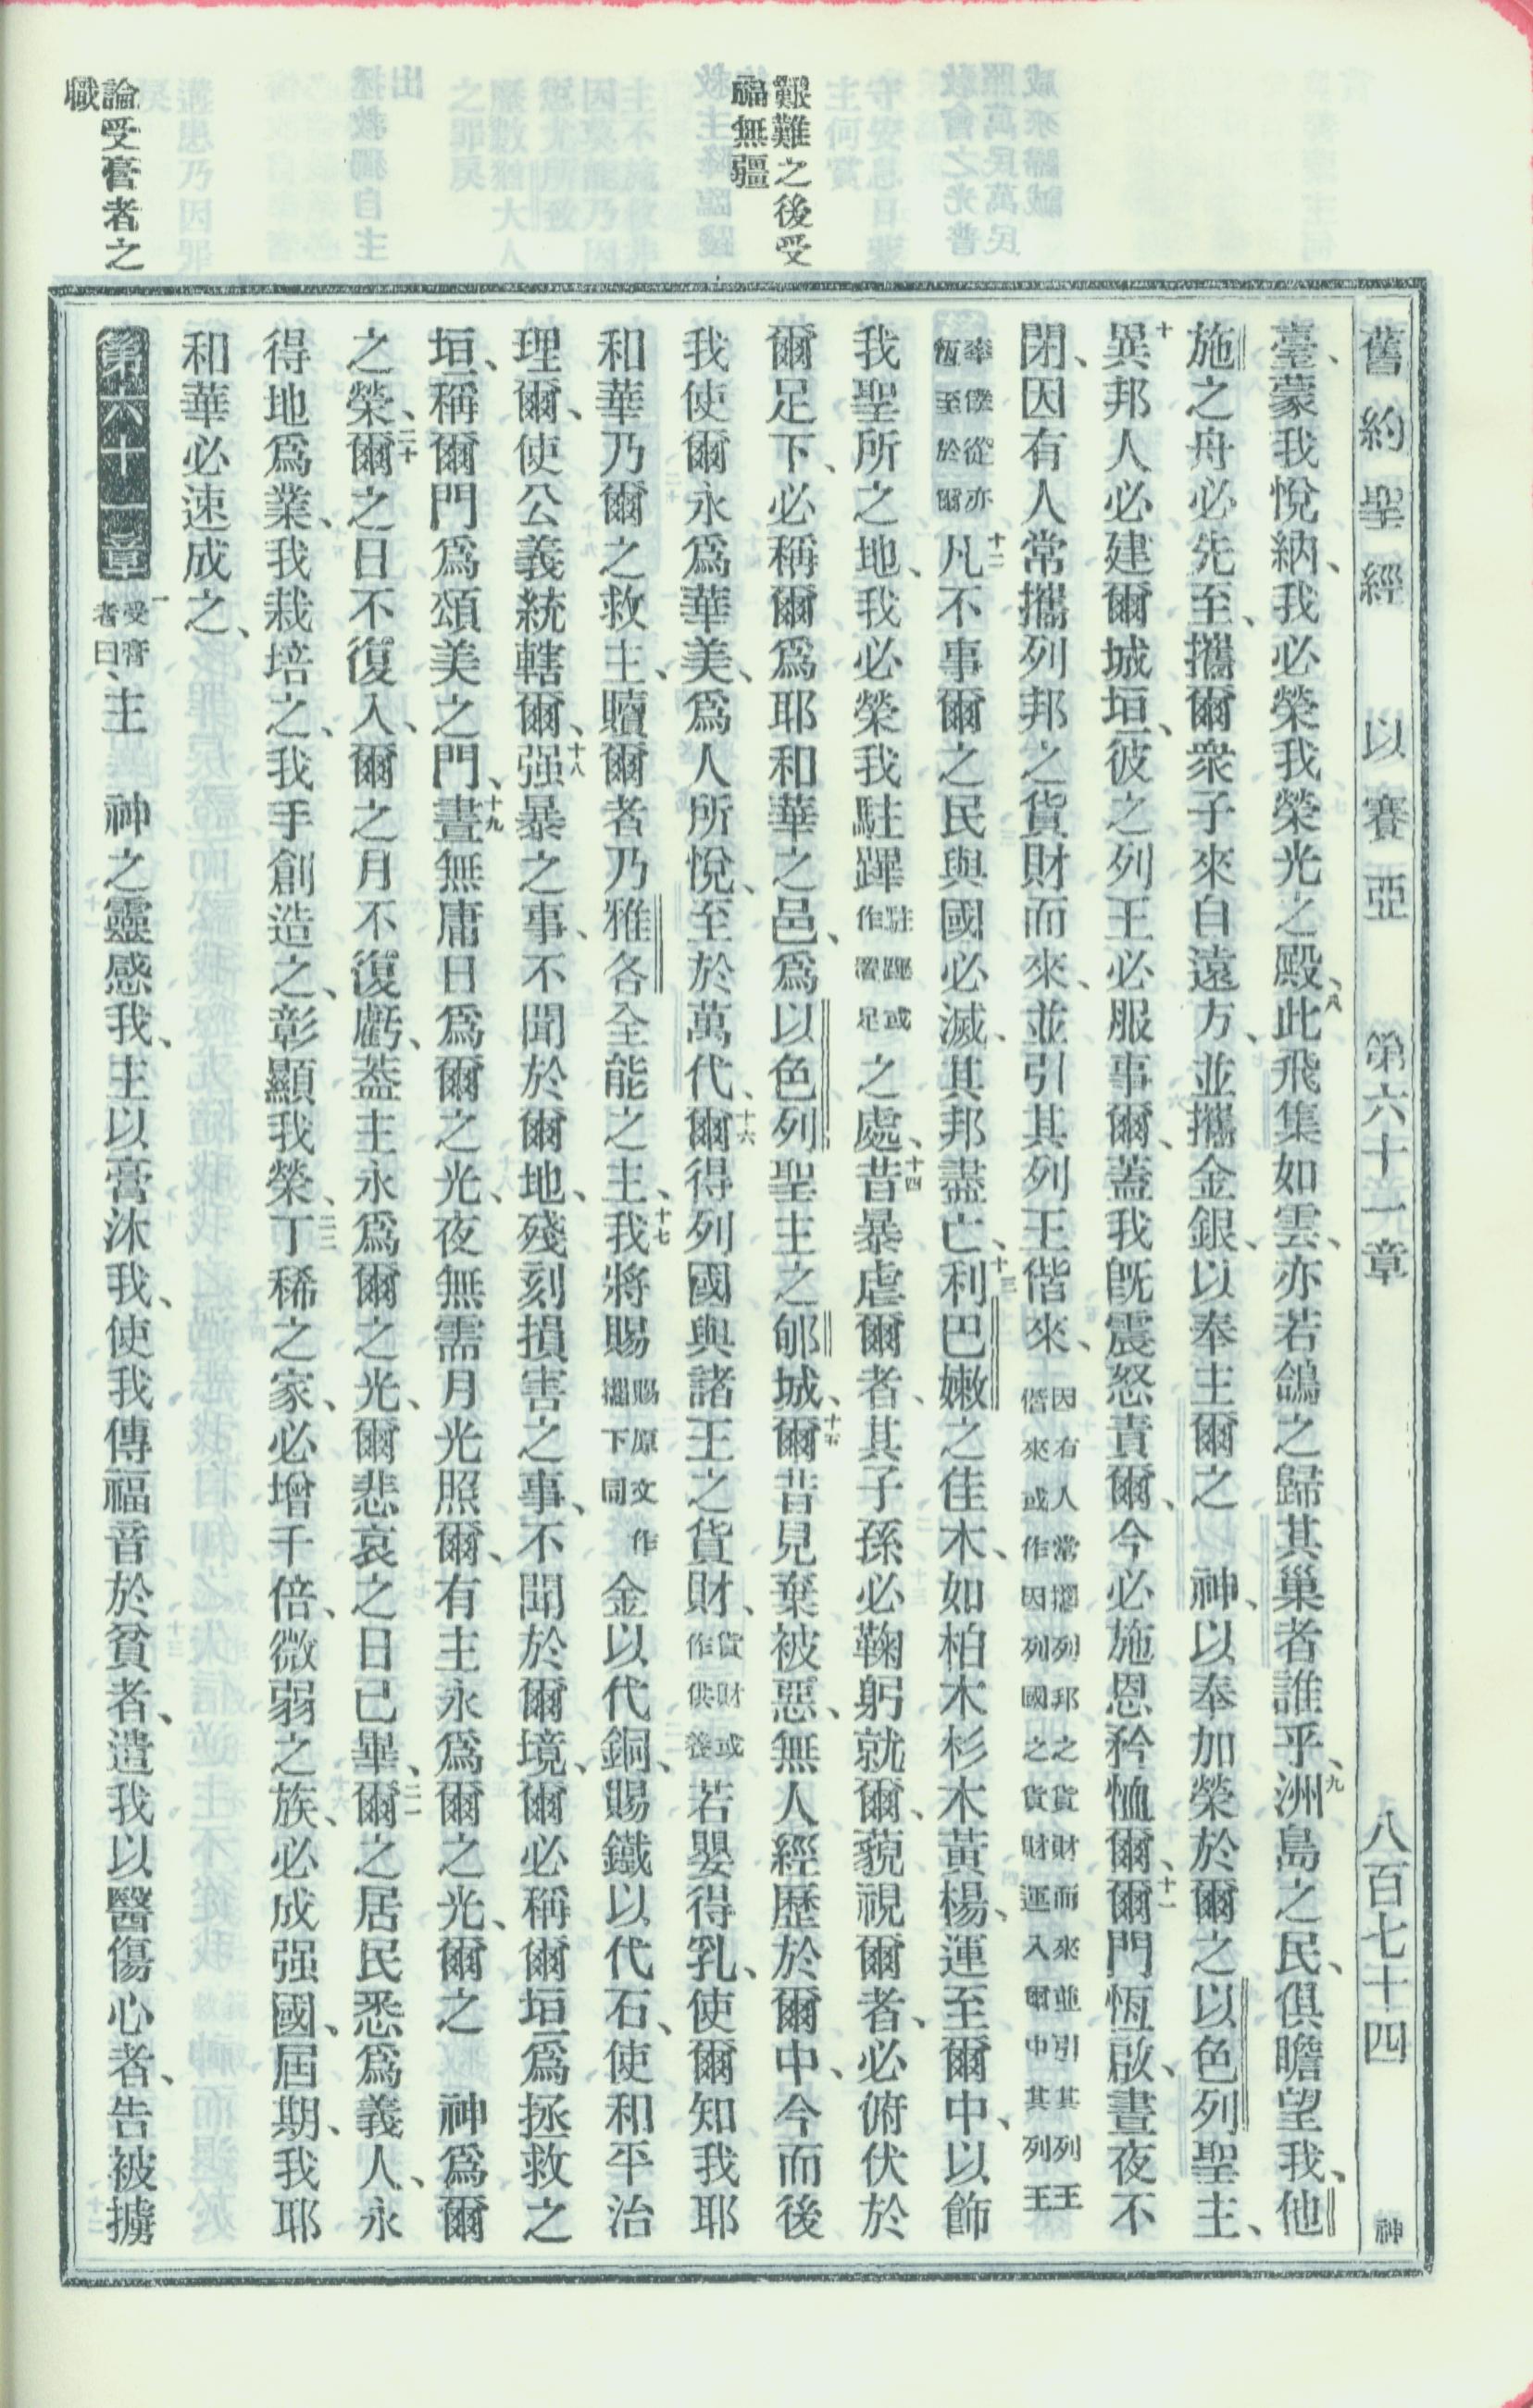 舊約聖經 以賽亞 第六十一章 八百七十四 神
艱難之後受
福無疆
論受膏者之
職
臺、蒙我悅納、我必榮我榮光之殿、八此飛集如雲、亦若鴿之歸其巢者誰乎、九洲島之民、俱瞻望我、他
施之舟必先至、攜爾衆子來自遠方、並攜金銀、以奉主爾之 神、以奉加榮於爾之以色列聖主、
十異邦人必建爾城垣、彼之列王必服事爾、蓋我旣震怒責爾、今必施恩矜恤爾、十一爾門恆啟、晝夜不
閉、因有人常攜列邦之貨財而來、並引其列王偕來、因有人常攜列邦之貨財而來並引其列王偕來或作因列國之貨財運入爾中其列王
率僕從亦恆至於爾十二凡不事爾之民與國必滅、其邦盡亡、十三利巴嫩之佳木、如柏木杉木黃楊、運至爾中、以飾
我聖所之地、我必榮我駐蹕駐蹕或作置足之處、十四昔暴虐爾者、其子孫必鞠躬就爾、藐視爾者、必俯伏於
爾足下、必稱爾爲耶和華之邑、爲以色列聖主之郇城、十五爾昔見棄被惡、無人經歷於爾中、今而後
我使爾永爲華美、爲人所悅、至於萬代、十六爾得列國與諸王之貨財、貨財或作供養若嬰得乳、使爾知我耶
和華乃爾之救主、贖爾者乃雅各全能之主、十七我將賜賜原文作攜下同金以代銅、賜鐵以代石、使和平治
理爾、使公義統轄爾、十八强暴之事、不聞於爾地、殘刻損害之事、不聞於爾境、爾必稱爾垣爲拯救之
垣、稱爾門爲頌美之門、十九晝無庸日爲爾之光、夜無需月光照爾、有主永爲爾之光、爾之 神爲爾
之榮、二十爾之日不復入、爾之月不復虧、葢主永爲爾之光、爾悲哀之日已畢、二一爾之居民悉爲義人、永
得地爲業、我栽培之、我手創造之、彰顯我榮、二二丁稀之家、必增千倍、微弱之族、必成强國、屆期、我耶
和華必速成之、
第六十一章 一受膏者曰、主 神之靈感我、主以膏沐我、使我傳福音於貧者、遣我以醫傷心者、告被擄